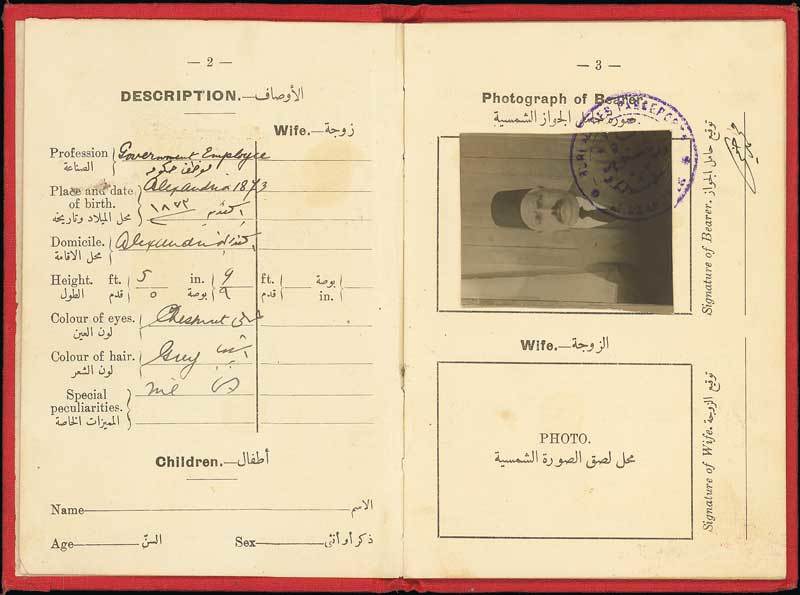 — 2 —
DESCRIPTION.—الأوصاف
Wife.—زوجة
Profession Government Employee
الصناعة موظف حكومة
Place and date of birth. Alexandria 1873
محل الميلاد وتاريخه ١٨٧٣
Domicile. Alexandria
محل الاقامة
Height. ft. 5 in. 9 ft. بوصة
الطول قدم ٥ بوصة ٩ قدم in.
Colour of eyes. Chestnut عسلي
لون العين
Colour of hair. Grey
لون الشعر
Special peculiarities. nil
المميزات الخاصة
Children.—أطفال
Name الاسم
Age السنّ Sex ذكر أو أنثى
— 3 —
Photograph of Bearer.
صورة حامل الجواز الشمسية
Signature of Bearer. توقيع حامل الجواز
Wife.—الزوجة
PHOTO.
محل لصق الصورة الشمسية
Signature of Wife. توقيع الزوجة